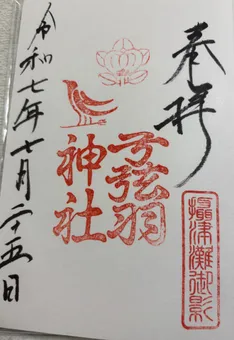 奉拝
攝津灘御影
弓弦羽
神社
令和七年七月二十五日